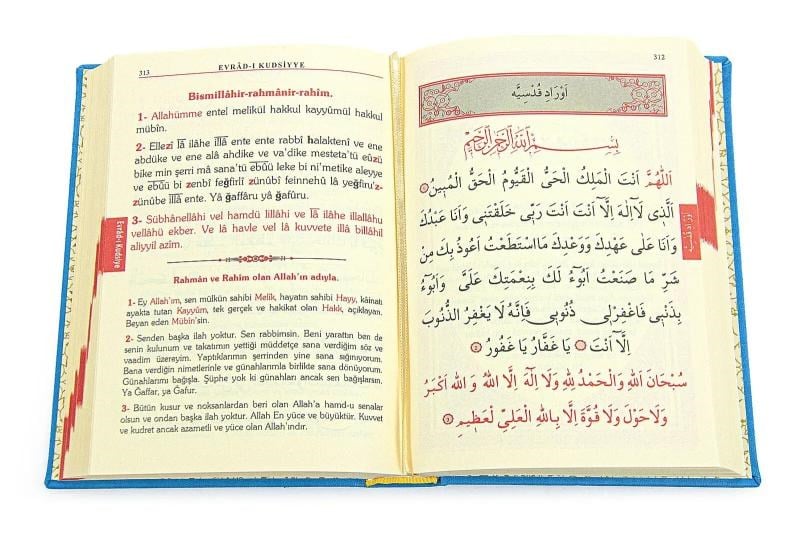 ٣١٢
اَوْرَادِ قُدْسِيَّه
بِسْــــمِ اللّٰهِ الرَّحْمٰنِ الرَّحِيمِ
اَللّٰهُمَّ اَنْتَ الْمَلِكُ الْحَىُّ الْقَيُّومُ الْحَقُّ الْمُبِينُ ١
اَلَّذِى لَا اِلٰهَ اِلَّا اَنْتَ اَنْتَ رَبِّى خَلَقْتَنِى وَاَنَا عَبْدُكَ
وَاَنَا عَلٰى عَهْدِكَ وَوَعْدِكَ مَا اسْتَطَعْتُ اَعُوذُ بِكَ مِنْ
شَرِّ مَا صَنَعْتُ اَبُوٓءُ لَكَ بِنِعْمَتِكَ عَلَىَّ وَاَبُوٓءُ
بِذَنْبِى فَاغْفِرْلِى ذُنُوبِى فَاِنَّهُ لَا يَغْفِرُ الذُّنُوبَ
اِلَّا اَنْتَ يَا غَفَّارُ يَا غَفُورُ ٢
سُبْحَانَ اللّٰهِ وَالْحَمْدُ لِلّٰهِ وَلَا اِلٰهَ اِلَّا اللّٰهُ وَ اللّٰهُ اَكْبَرُ
وَلَا حَوْلَ وَلَا قُوَّةَ اِلَّا بِاللّٰهِ الْعَلِىِّ الْعَظِيمِ ٣
اَوْرَادِ قُدْسِيَّه
313
EVRÂD-I KUDSİYYE
Bismillâhir-rahmânir-rahîm.
1- Allahümme entel melikül hakkul kayyûmül hakkul
mübîn.
2- Ellezî lâ ilâhe illâ ente ente rabbî halaktenî ve ene
abdüke ve ene alâ ahdike ve va'dike mesteta'tü eûzü
bike min şerri mâ sana'tü ebûü leke bi ni'metike aleyye
ve ebûü bi zenbî feğfirlî zünûbî feinnehû lâ yeğfiru'z-
zünûbe illâ ente. Yâ ğaffâru yâ ğafûru.
3- Sübhânellâhi vel hamdü lillâhi ve lâ ilâhe illallâhu
vellâhü ekber. Ve lâ havle vel lâ kuvvete illâ billâhil
aliyyil azîm.
Rahmân ve Rahîm olan Allah'ın adıyla.
1- Ey Allah'ım, sen mülkün sahibi Melik, hayatın sahibi Hayy, kâinatı
ayakta tutan Kayyûm, tek gerçek ve hakikat olan Hakk, açıklayan,
Beyan eden Mübîn'sin.
2- Senden başka ilah yoktur. Sen rabbimsin. Beni yarattın ben de
senin kulunum ve takatımın yettiği müddetçe sana verdiğim söz ve
vaadim üzereyim. Yaptıklarımın şerrinden yine sana sığınıyorum.
Bana verdiğin nimetlerinle ve günahlarımla birlikte sana dönüyorum.
Günahlarımı bağışla. Şüphe yok ki günahları ancak sen bağışlarsın.
Ya Ğaffar, ya Ğafur.
3- Bütün kusur ve noksanlardan beri olan Allah'a hamd-u senalar
olsun ve ondan başka ilah yoktur. Allah En yüce ve büyüktür. Kuvvet
ve kudret ancak azametli ve yüce olan Allah'ındır.
Evrâd-ı Kudsiye